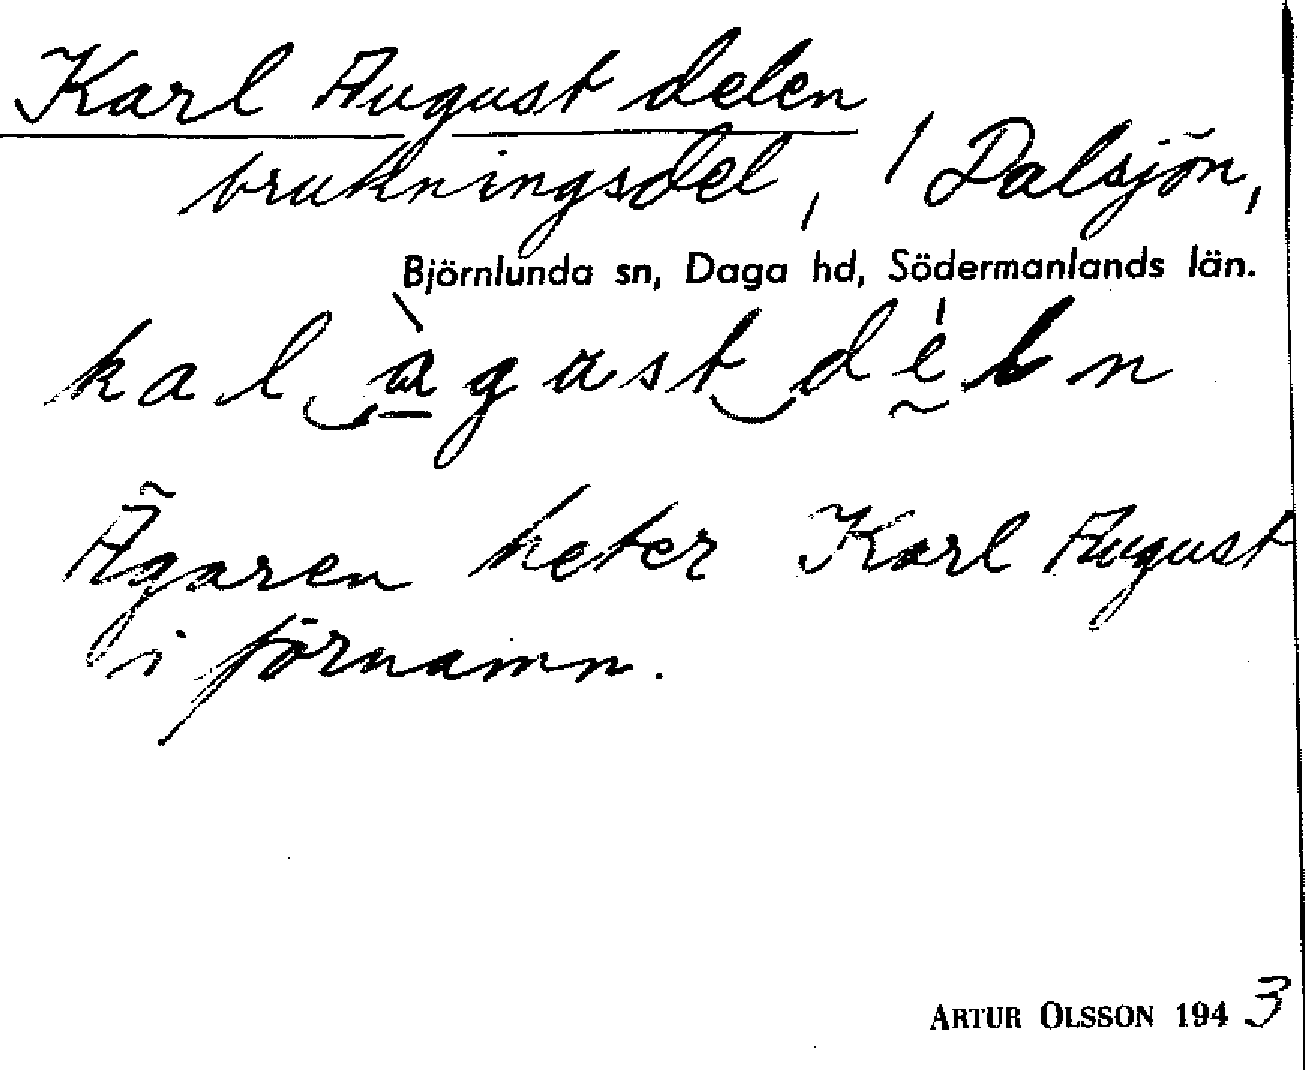 Karl August delen
brukningsdel, / Dalsjön,
Björnlunda sn, Daga hd, Södermanlands län.
kal àgust déln
Ägaren heter Karl August
i förnamn.
ARTUR OLSSON 1943